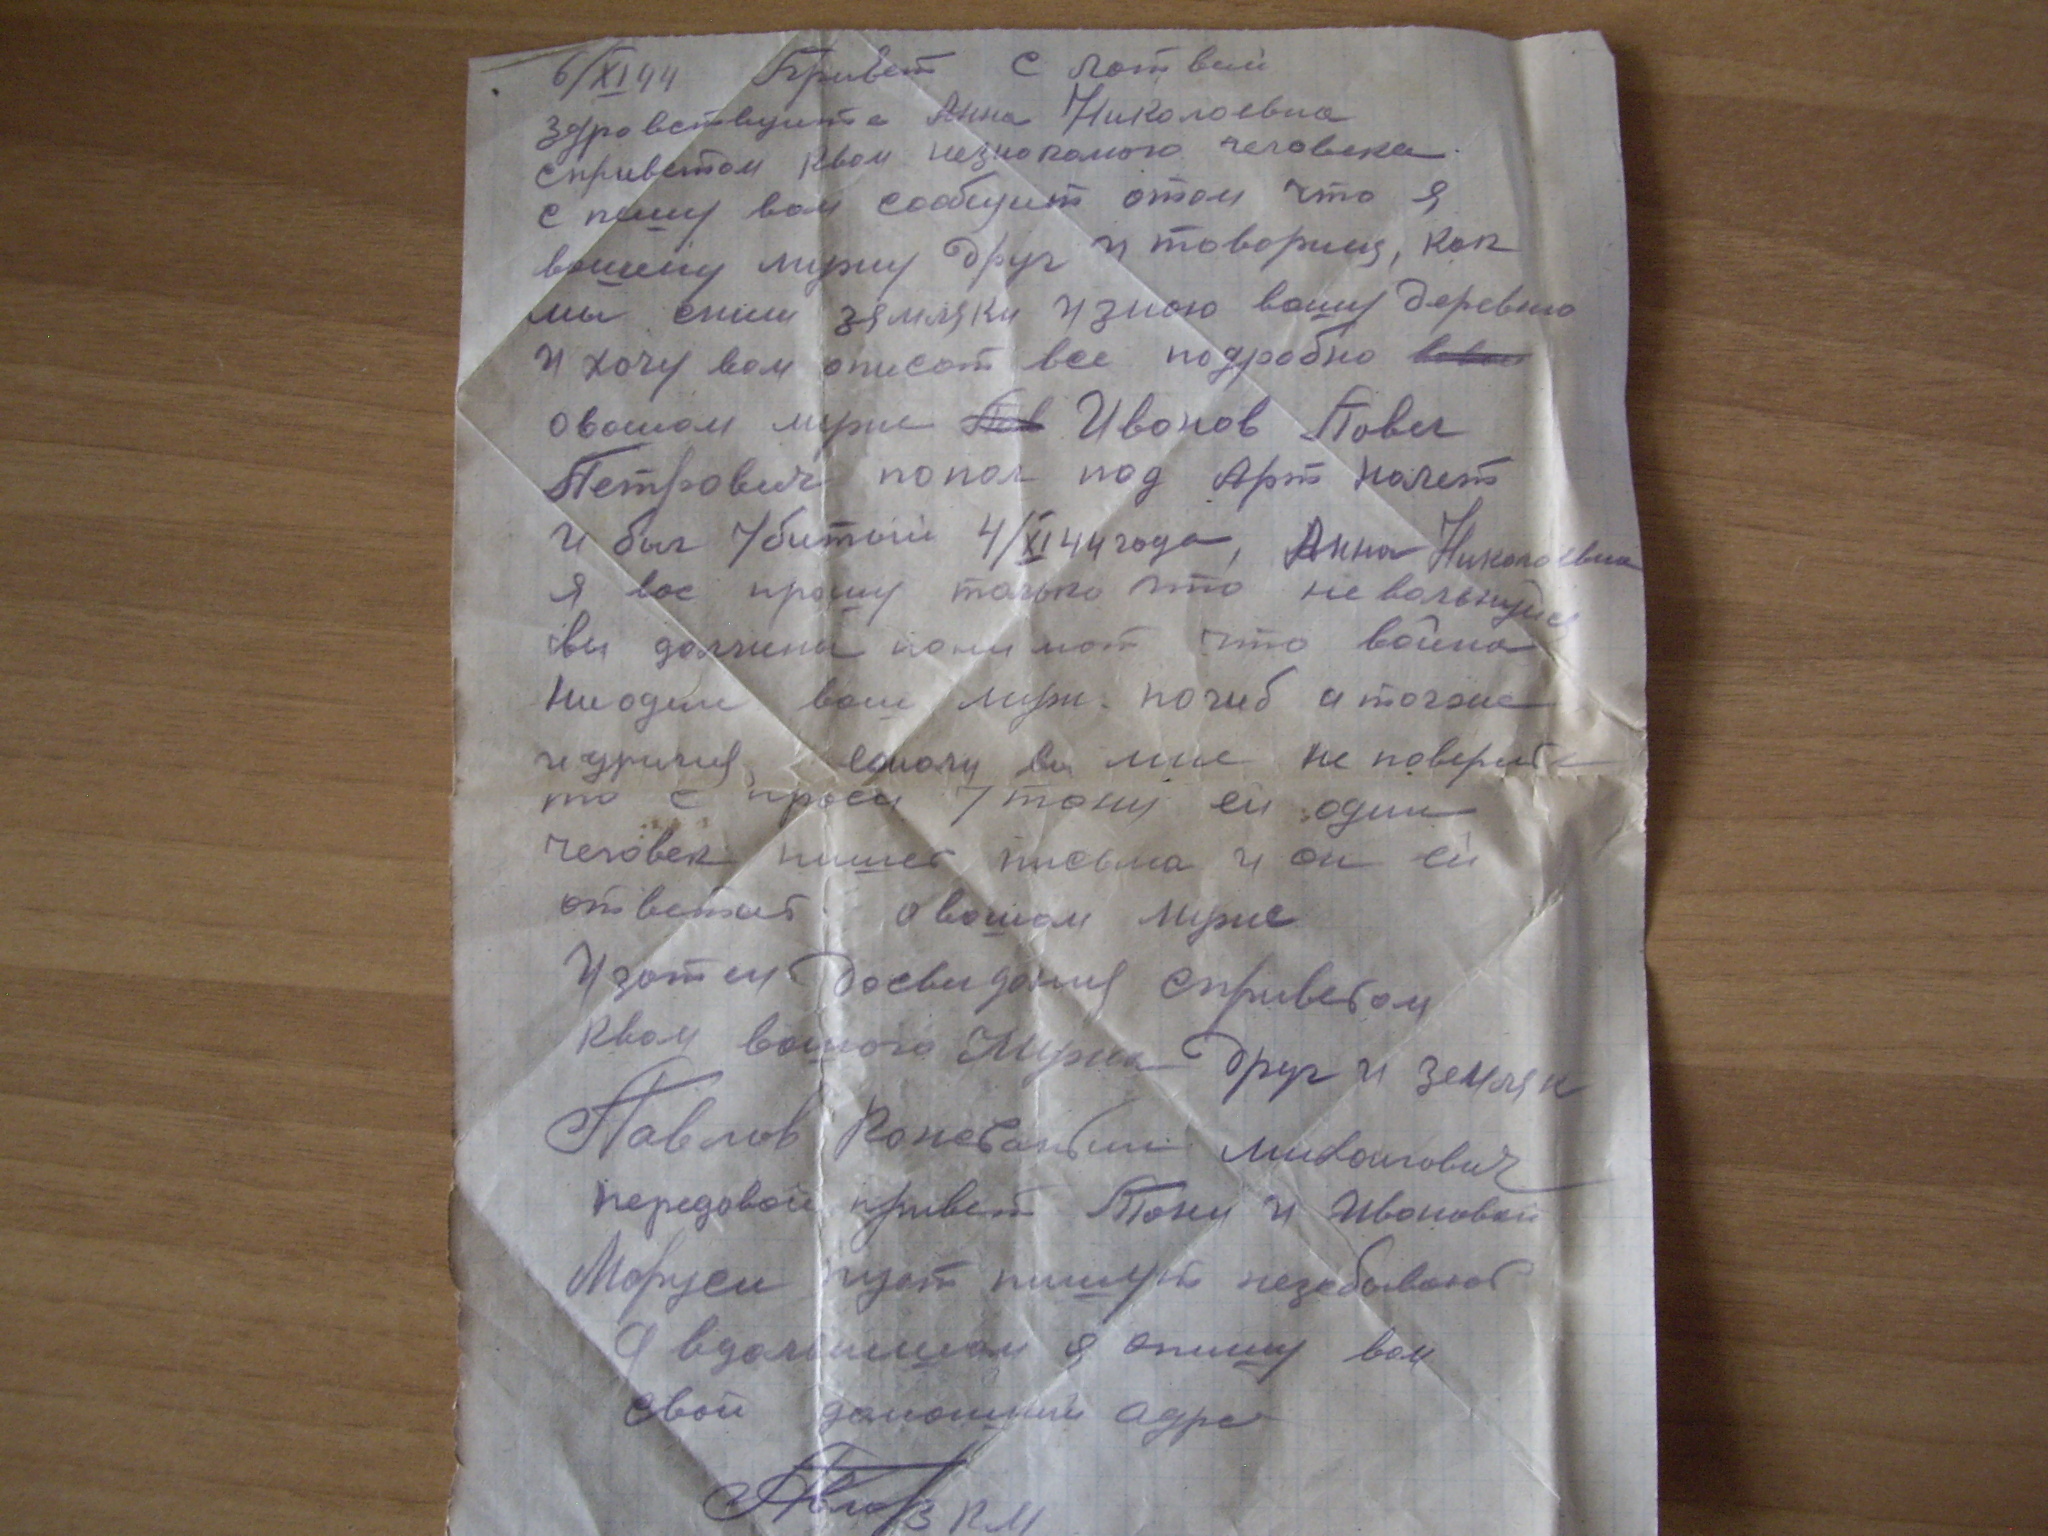 6/XI 44 Привет с Латвии
здравствуите Анна Николаевна
сприветом квам незнакомого человека.
спишу вам сообщит отом что я
вашему мужу друг и товарищ, как
мы сним зямляки и знаю вашу деревню
и хочу вам описат все подробно
овашом муже Пав Иванов Павел
Петрович попал под Арт налет
и был убитый 4/XI 44 года, Анна Николаевна
я вас прошу только что не вольнуйся
вы должны понимат что война
ниодин ваш муж. погиб а также
и другия, вы мне не поверите
то спроси у тони ей один
человек пишет письма и он ей
ответит овашом муже
И затем досвидания сприветом
квам вашого Мужа друг и земляк
Павлов Константин михайлович
передовай привет Тони и Ивановой
Маруси пуст пишут незабывают
А вдальнишом я опишу вам
свой домошний адрес
Павлов КМ